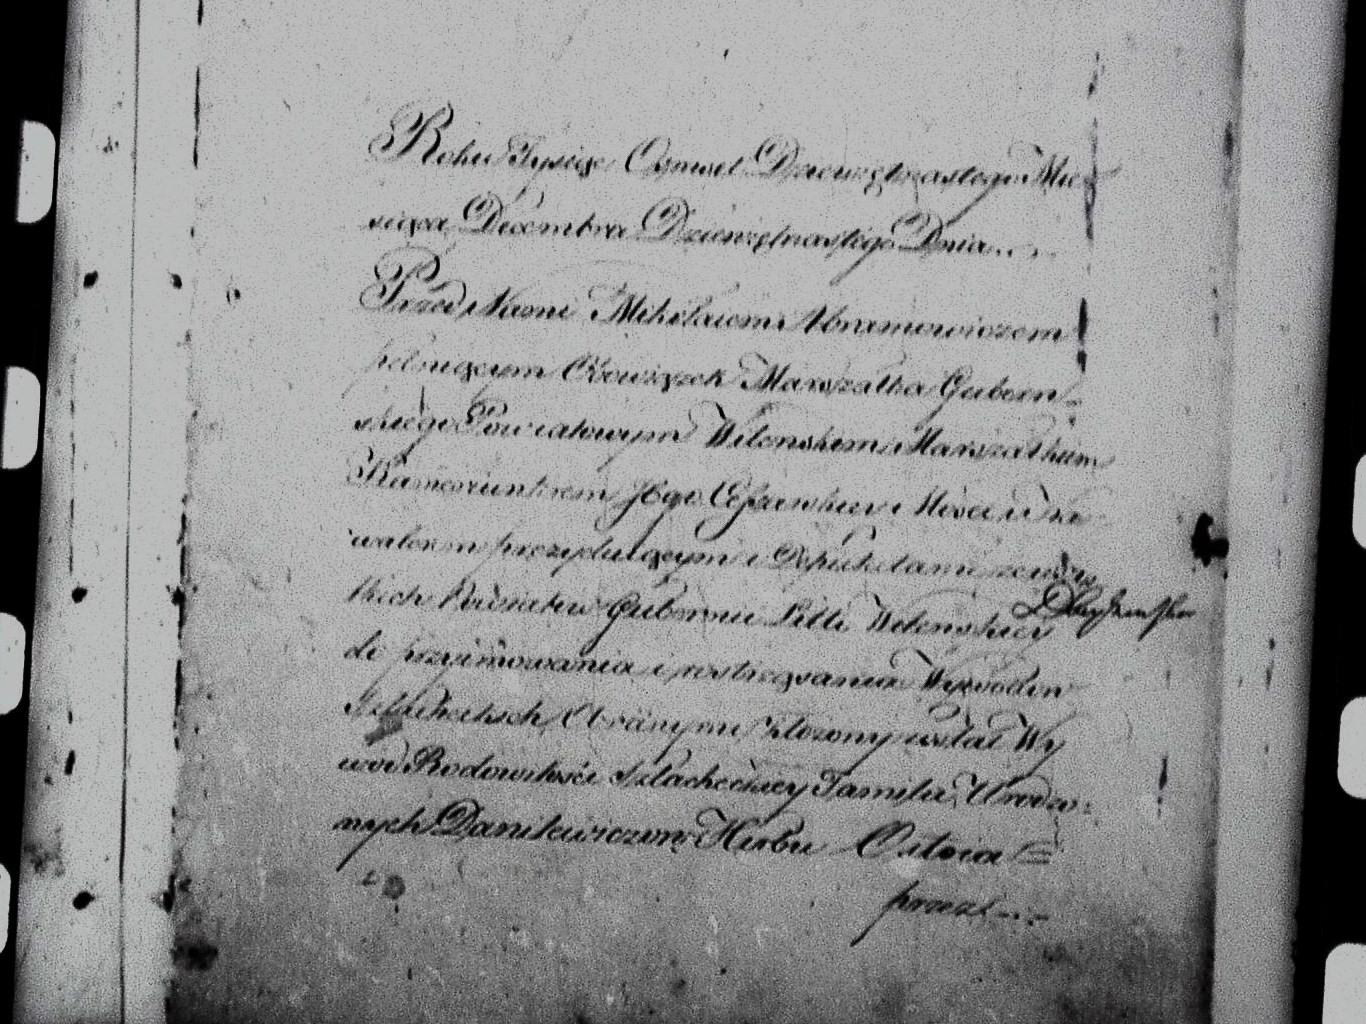 Roku Tysiąc Osmset Dziewiętnastego Mie-
siąca Decembra Dziewiętnastego Dnia...
Przed Nami Mikołaiem Abramowiczem
pełniącym Obowiązek Marszałka Gubern-
skiego Powiatowym Wilenskim Marszałkiem
Kameriunkrem Jego Cesarskiey Mosci i Ka-
walerem prezyduiącym i Deputatami ze wszy-
tkich Powiatow Gubernii Litt: Wilenskiey
do przyimowania i rostrząsania Wywodow
Szlacheckich Obranymi złożony został Wy
wod Rodowitości Szlacheckiey Familii Urodzo-
nych Danilewiczow Herbu Ostoia =
przez...